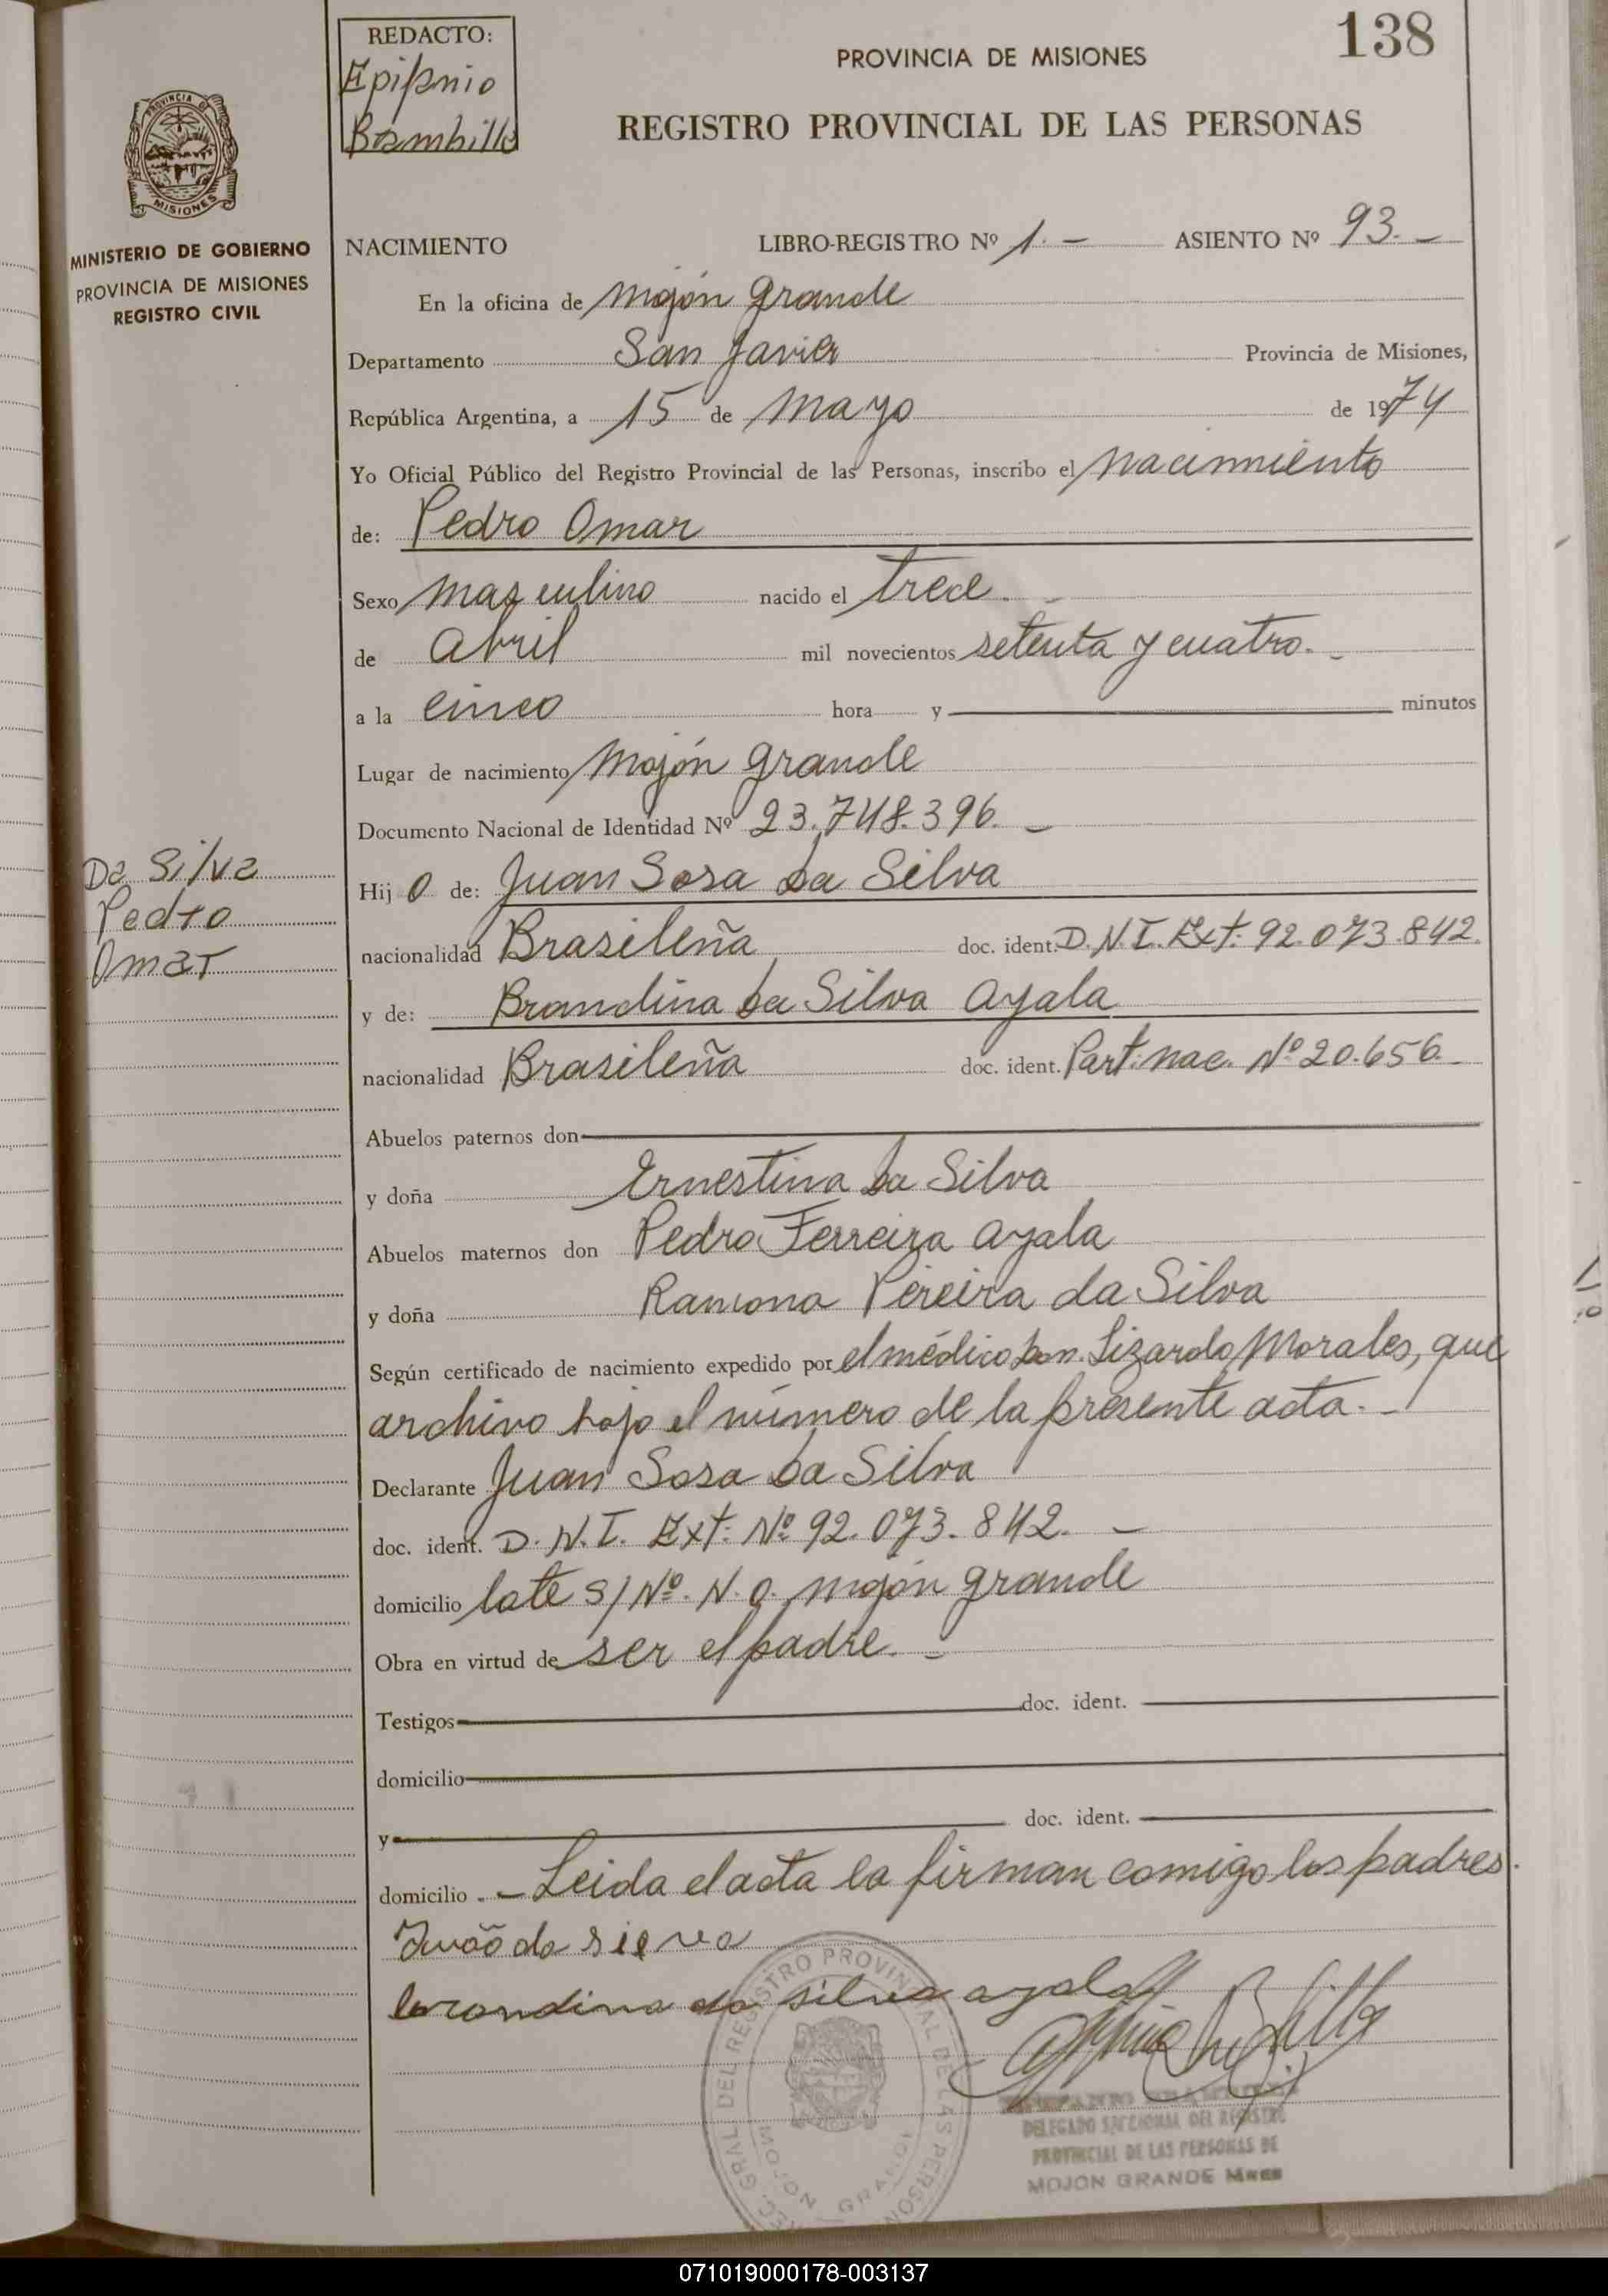 138
REDACTO:
Epifanio
Bombilla
PROVINCIA DE MISIONES
REGISTRO PROVINCIAL DE LAS PERSONAS
PROVINCIA DE
MISIONES
MINISTERIO DE GOBIERNO
PROVINCIA DE MISIONES
REGISTRO CIVIL
NACIMIENTO LIBRO-REGISTRO Nº 1.- ASIENTO Nº 93.-
En la oficina de Mojón Grande
Departamento San Javier Provincia de Misiones,
República Argentina, a 15 de Mayo de 1974
Yo Oficial Público del Registro Provincial de las Personas, inscribo el nacimiento
de: Pedro Omar
Sexo masculino nacido el trece.-
de abril mil novecientos setenta y cuatro.-
a la cinco hora y minutos
Lugar de nacimiento Mojón Grande
Documento Nacional de Identidad Nº 23.748.396.-
Da Silva
Pedro
Omar
Hijo de: Juan Sosa Da Silva
nacionalidad Brasileña doc. ident. D.N.I. Ext. 92.073.842.
y de: Brandina Da Silva Ayala
nacionalidad Brasileña doc. ident. Part. nac. Nº 20.656.
Abuelos paternos don
y doña Ernestina Da Silva
Abuelos maternos don Pedro Ferreira Ayala
y doña Ramona Pereira da Silva
Según certificado de nacimiento expedido por el médico Don. Lizardo Morales, que
archivo bajo el número de la presente acta.-
Declarante Juan Sosa Da Silva
doc. ident. D.N.I. Ext. Nº 92.073.842.-
domicilio lote S/Nº. N.O. Mojón Grande
Obra en virtud de ser el padre.-
Testigos doc. ident.
domicilio
y doc. ident.
domicilio.- Leida el acta la firman comigo los padres.
Juvão da sieva
brandina da silva ayala
DELEGADO SECCIONAL DEL REGISTRO
PROVINCIAL DE LAS PERSONAS DE
MOJON GRANDE Mnes
GRAL. DEL REGISTRO PROVINCIAL DE LAS PERSONAS
MOJON GRANDE
071019000178-003137